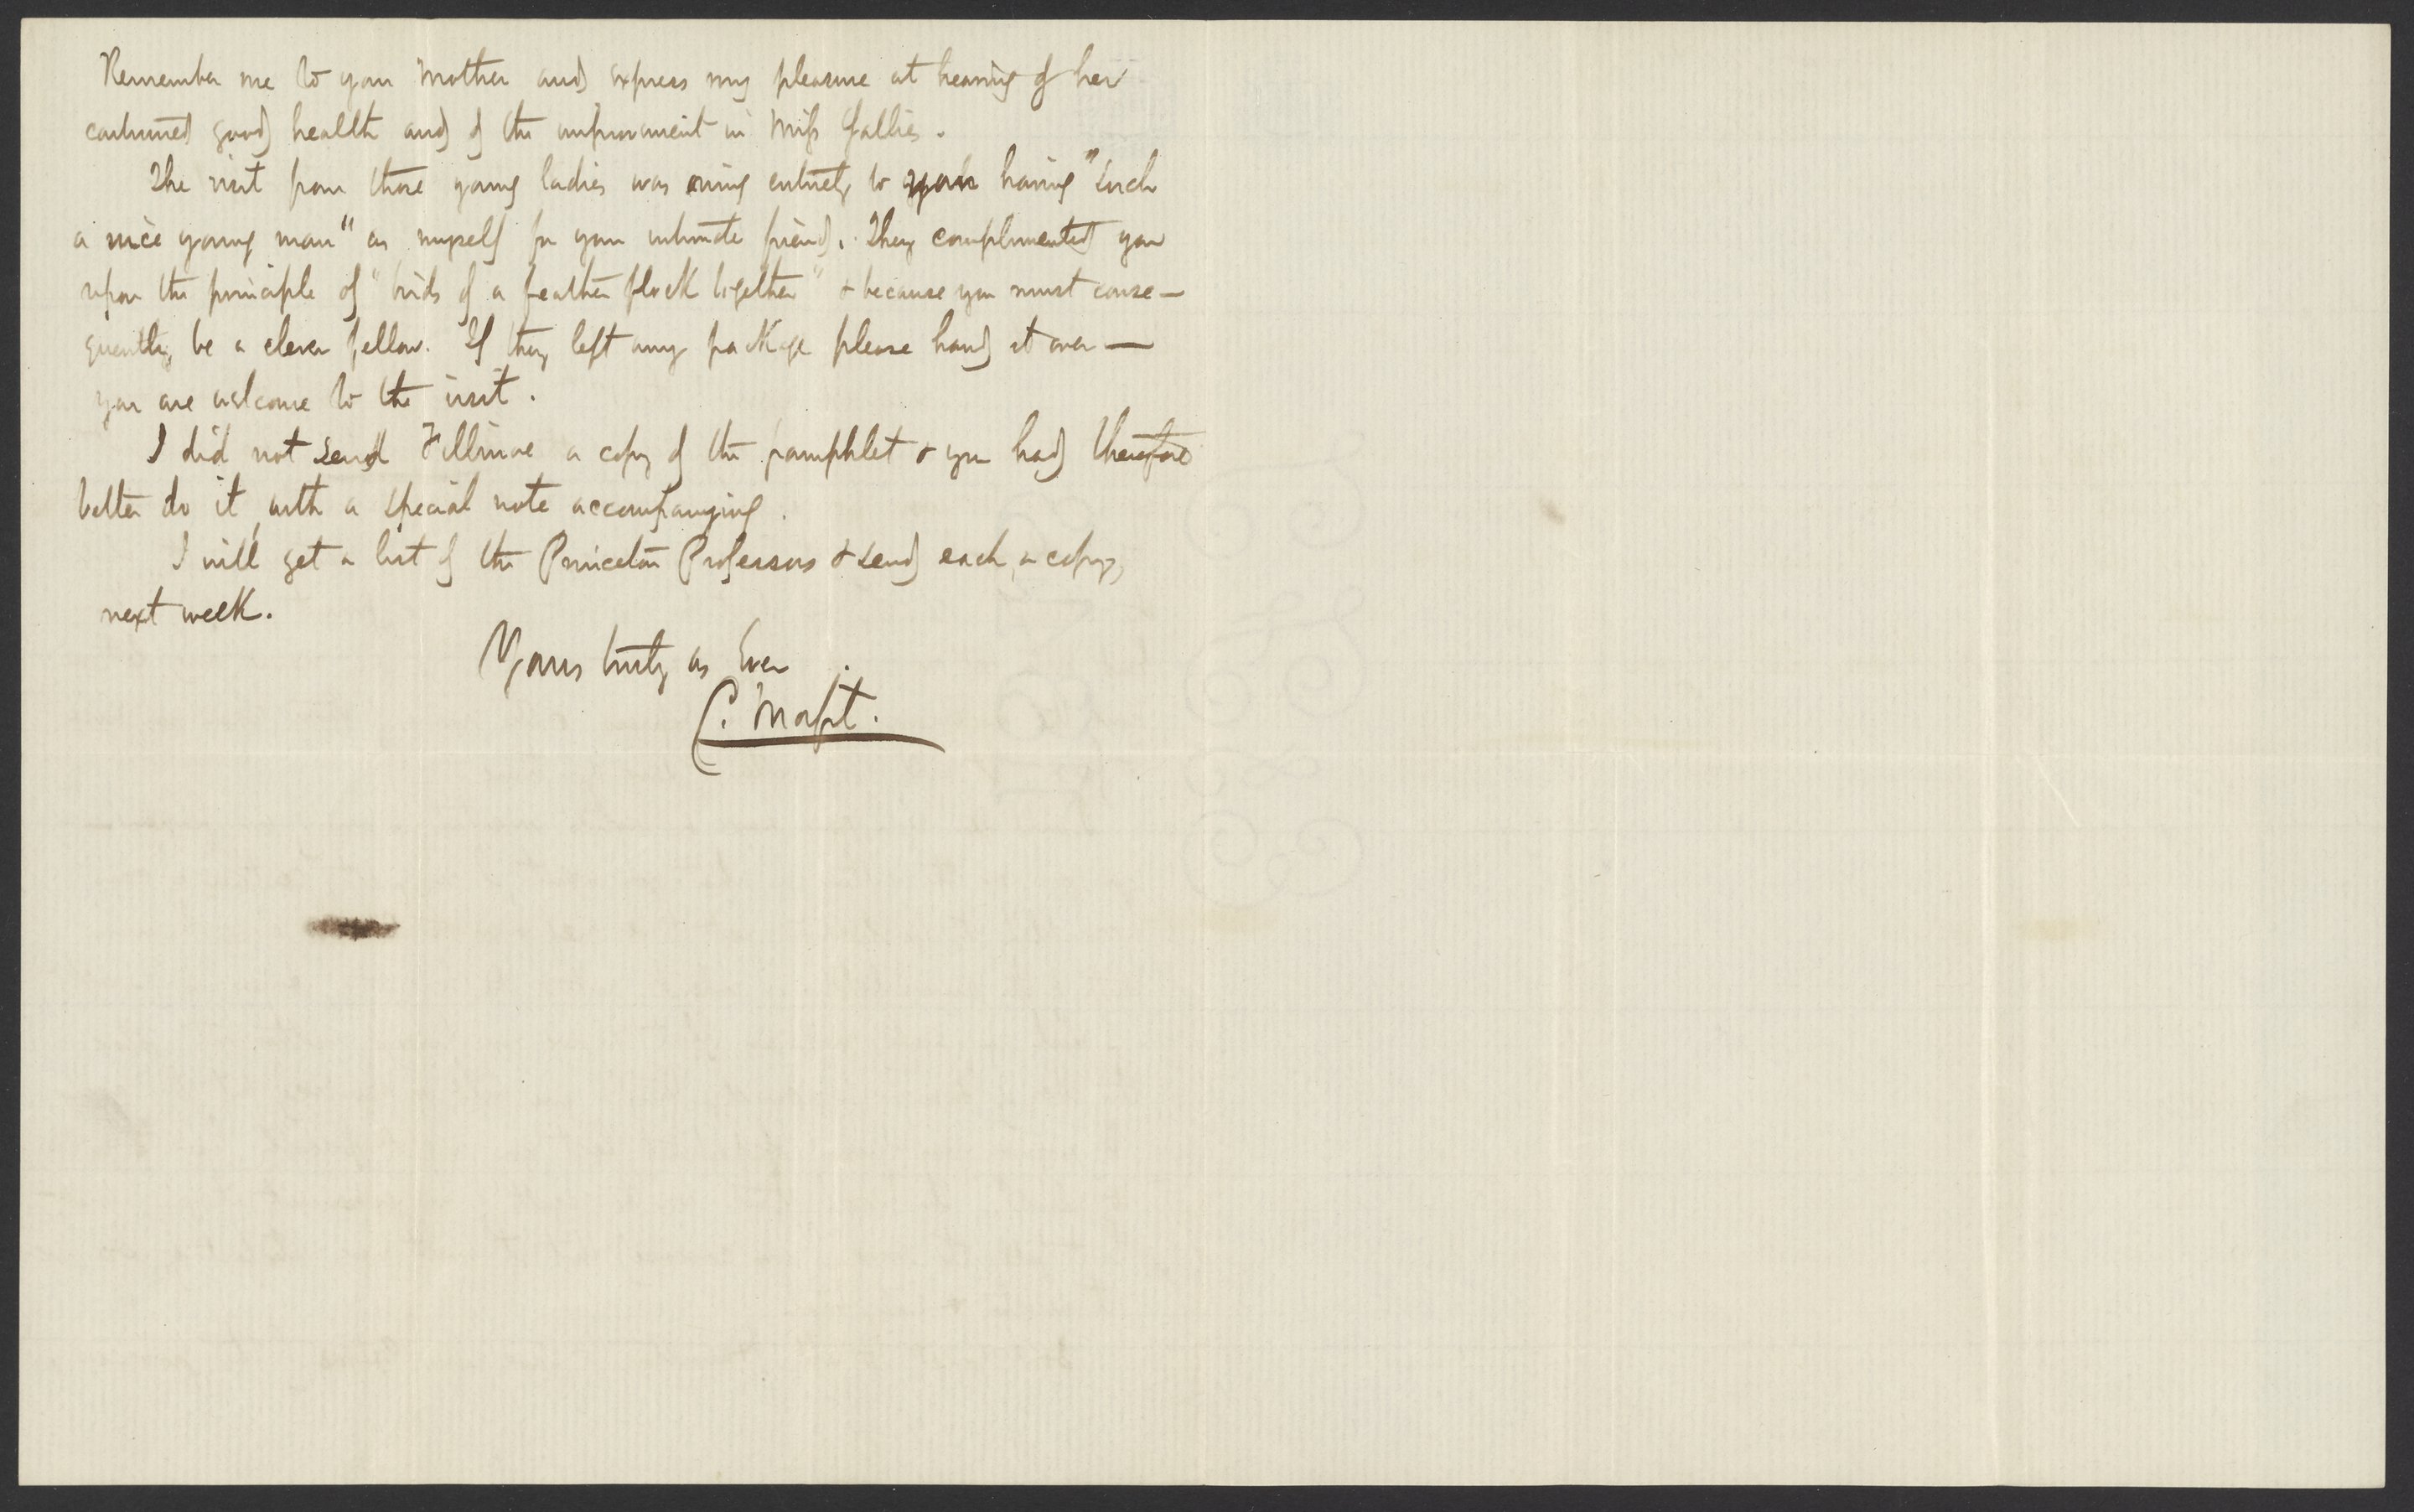 Remember me to your Mother and express my pleasure at hearing of her
continued good health and of the improvement in Miss Gallies.
The visit from those young ladies was owing entirely to your having "such
a nice young man" as myself for your intimate friend. They complimented you
upon the principle of "birds of a feather flock together" & because you must conse-
quently be a clever fellow. If they left any package please hand it over —
you are welcome to the visit.
I did not send Fillmore a copy of the pamphlet & you had therefore
better do it, with a special note accompanying.
I will get a list of the Princeton Professors & send each a copy,
next week.
Yours truly as Ever
C. Morfit.